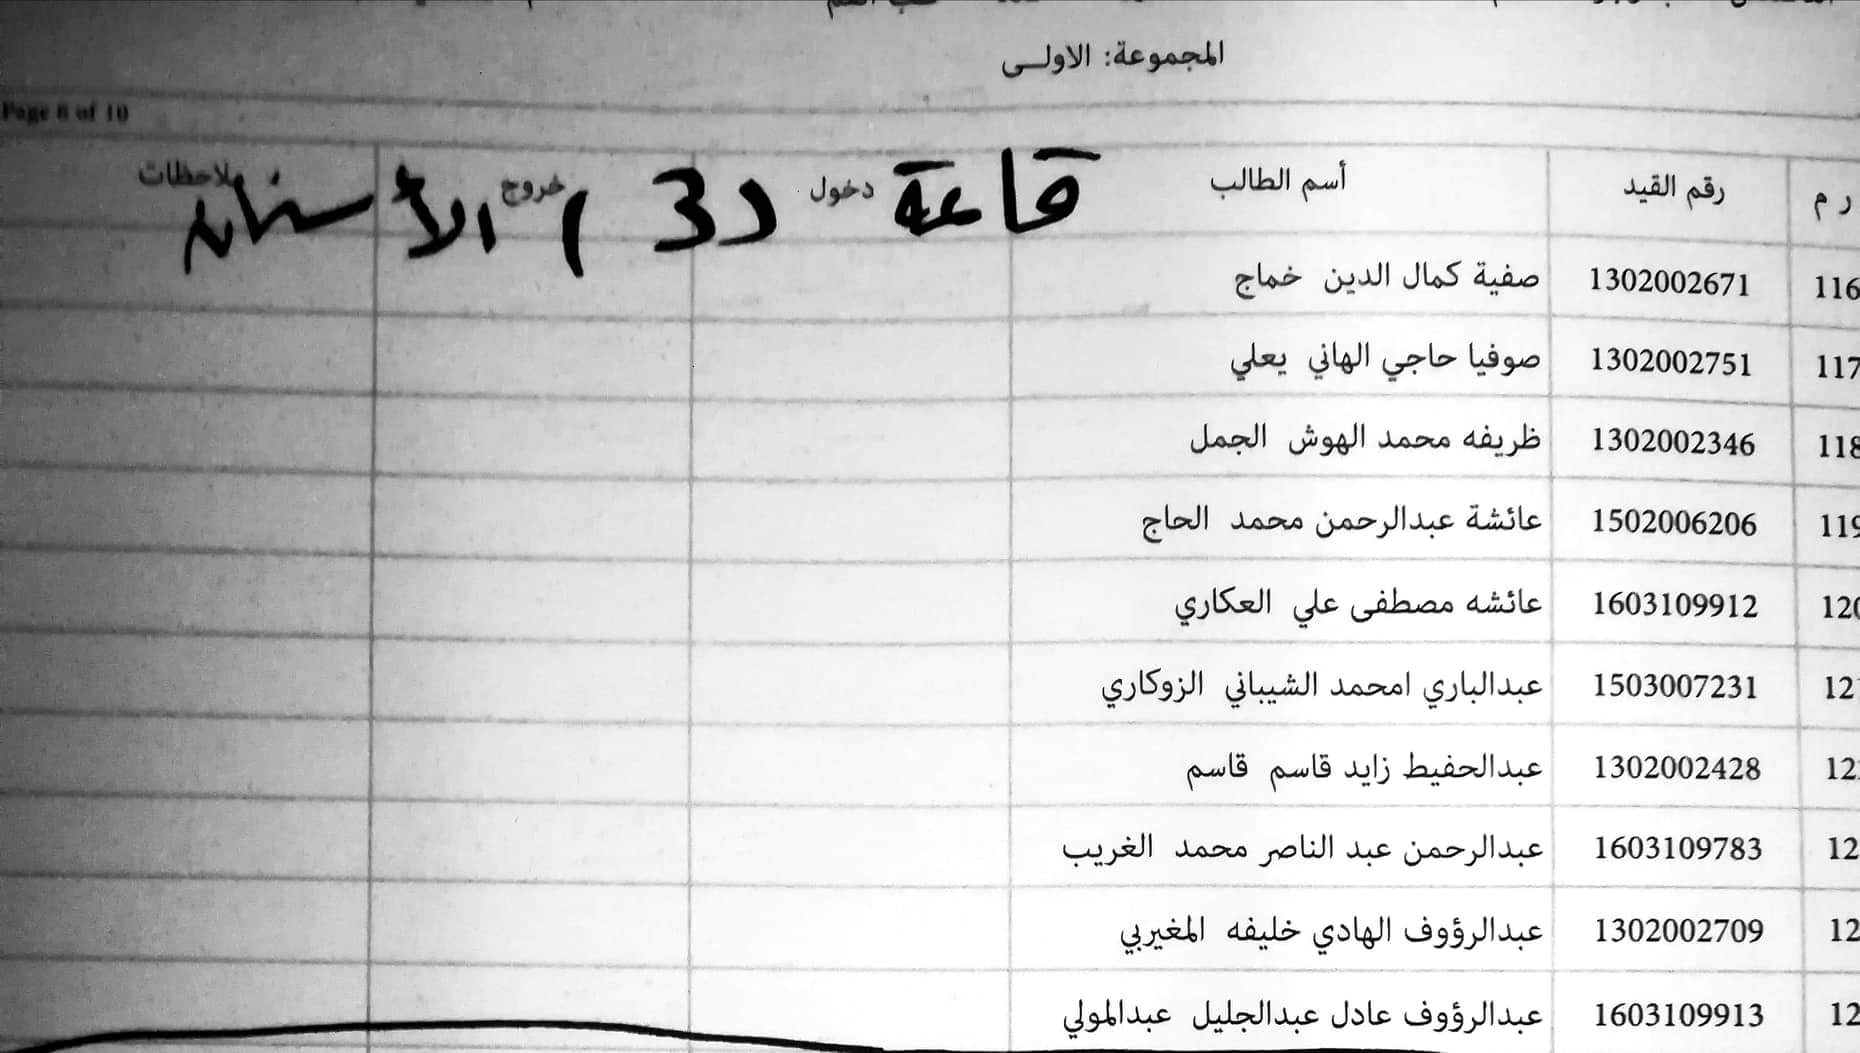 المجموعة: الاولى
Page 8 of 10
ر م رقم القيد أسم الطالب دخول خروج ملاحظات
قاعة (3) الأسنان
116 1302002671 صفية كمال الدين خماج
117 1302002751 صوفيا حاجي الهاني يعلي
118 1302002346 ظريفه محمد الهوش الجمل
119 1502006206 عائشة عبدالرحمن محمد الحاج
120 1603109912 عائشه مصطفى علي العكاري
12 1503007231 عبدالباري امحمد الشيباني الزوكاري
12 1302002428 عبدالحفيط زايد قاسم قاسم
12 1603109783 عبدالرحمن عبد الناصر محمد الغريب
12 1302002709 عبدالرؤوف الهادي خليفه المغيربي
12 1603109913 عبدالرؤوف عادل عبدالجليل عبدالمولي